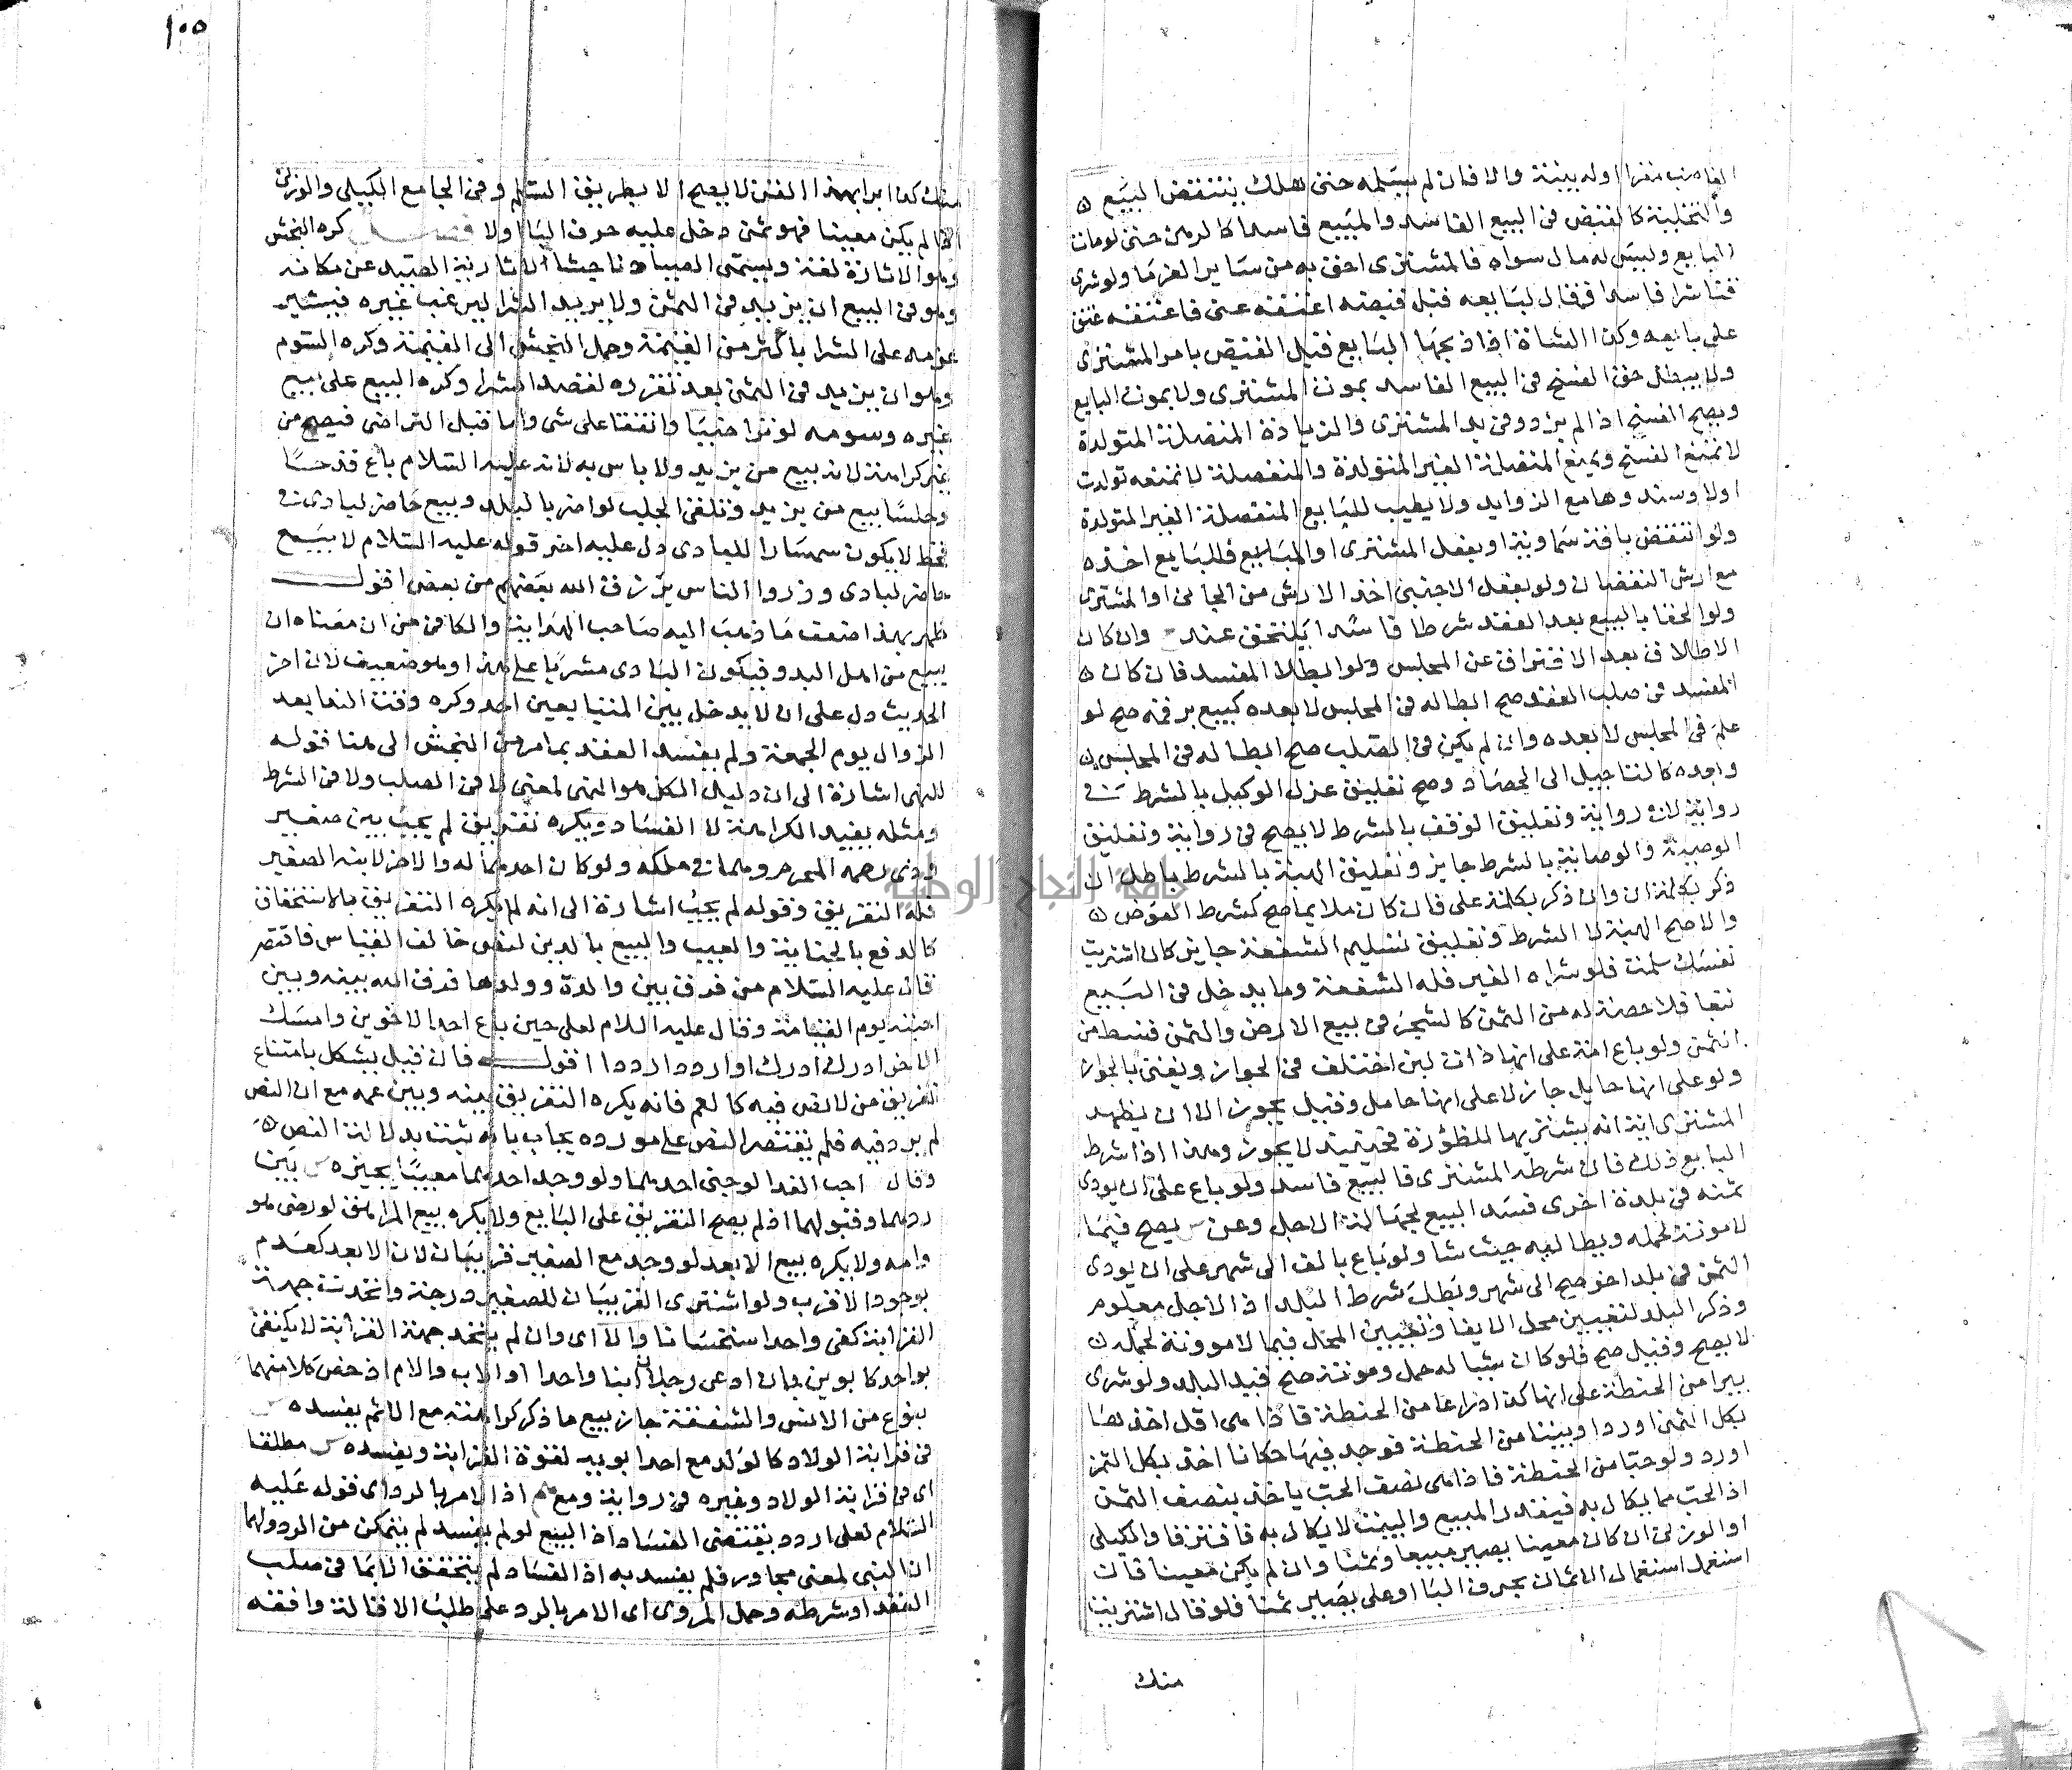 الغاصب مقرا او له بينة والا فان لم يسلمه حتى هلك ينتقض البيع ه
والتخلية كالقبض في البيع الفاسد والمبيع فاسدا كالرهن حتى لو مات
البايع وليس له مال سواه فالمشتري احق به من ساير الغرما ولو شرى
قنا شرا فاسدا فقال لبايعه قبل قبضه اعتقه عنى فاعتقه عتق
على بايعه وكذا الشاة اذا ذبحها البايع قبل القبض بامر المشتري
ولا يبطل حق الفسخ في البيع الفاسد بموت المشتري ولا بموت البايع
ويصح الفسخ اذا لم يزد وفي يد المشتري والزيادة المنفصلة المتولدة
لا تمنع الفسخ ويمنع المتصلة الغير المتولدة والمنفصلة لا تمنعه تولدت
اولا وسترد وها مع الزوايد ولا يطيب للبايع المنفصلة الغير المتولدة
ولو انتقض بافة سماوية او بفعل المشتري او المبايع فللبايع اخذه
مع ارش النقصان ولو بفعل الاجنبي اخذ الارش من الجاني او المشتري
ولو الحقا بالبيع بعد العقد شرطا فاسدا يلتحق عند وان كان
الاطلاق بعد الافتراق عن المجلس ولو ابطلا المفسد فان كان ه
المفسد في صلب العقد صح ابطاله في المجلس لا بعده كبيع برقمه صح لو
علم في المجلس لا بعده وان لم يكن في الصلب صح ابطاله في المجلس ه
وبعده كالتاجيل الى الحصاد وصح تعليق عزل الوكيل بالشرط في
رواية لا في رواية وتعليق الوقف بالشرط لا يصح في رواية وتعليق
الوصية والوصاية بالشرط جايز وتعليق الهبة بالشرط باطل ان
ذكر بكلمة ان وان ذكر بكلمة على فان كان ملايما صح كشرط العوض ه
والاصح الهبة لا الشرط وتعليق تسليم الشفعة جايز كان اشتريت
نفسك سلمت فلو شراه الغير فله الشفعة وما يدخل في البيع
تبعا فلا حصة له من الثمن كالشجر في بيع الارض والثمن قسط من
الثمن ولو باع امة على انها ذات لبن اختلف في الجواز ويفتى بالجواز
ولو على انها حايل جاز لا على انها حامل وقيل يجوز الا ان يظهر
المشتري انه يشتريها للظؤرة فحينيذ لا يجوز وهذا اذا شرط
البايع ذلك فان شرطه المشتري فالبيع فاسد ولو باع على ان يودى
ثمنه في بلدة اخرى فسد البيع لجهالة الاجل وعن س يصح فيما
لا مونة لحمله ويطالبه حيث شا ولو باع بالف الى شهر على ان يودى
الثمن في بلد اخر صح الى شهر وبطل شرط البلد اذ الاجل معلوم
وذكر البلد لتعيين محل الايفا وتعيين المحل فيما لا مونة لحمله ه
لا يصح وقيل صح فلو كان شيا له حمل ومونة صح قيد البلد ولو شرى
بيرا من الحنطة على انها كذا ذراعا من الحنطة فاذا هي اقل اخذها
بكل الثمن او رد او بيتا من الحنطة فوجد فيها دكانا اخذ بكل الثمن
او رد ولو حبا من الحنطة فاذا هي نصف الحب ياخذ بنصف الثمن
اذ الحب مما يكال به فيقدر المبيع والبيت لا يكال به فافترقا والكيلى
او الوزنى ان كان معينا يصير مبيعا وثمنا وان لم يكن معينا فان
استعمل استعمال الاثمان بحرف البا او على يصير ثمنا فلو قال اشتريت
منك
١٠٥
منك كذا برا بهذا القن لا يصح الا بطريق السلم وفي الجامع الكيلى والوزنى
اذا لم يكن معينا فهو ثمن دخل عليه حرف البا اولا فصل كره النجش
وهو الاثارة لغة ويسمى الصياد ناجشا لاثارته الصيد عن مكانه
وهو في البيع ان يزيد في الثمن ولا يريد الشرا ليرغب غيره فيشير
عزمه على الشرا باكثر من القيمة وحمل النجش الى القيمة وكره السوم
وهو ان يزيد في الثمن بعد تقرره لقصد الشرا وكره البيع على بيع
غيره وسومه لو تراضيا واتفقا على شى واما قبل التراضى فيصح من
غير كراهة لانه بيع من يزيد ولا باس به لانه عليه السلام باع قدحا
وحلسا ببيع من يزيد وتلقى الجلب لو اضر بالبلد وبيع حاضر لبادى في
قحط لا يكون سمسارا للبادى دل عليه اخر قوله عليه السلام لا يبيع
حاضر لبادى وذروا الناس يرزق الله بعضهم من بعض اقول
ظهر بهذا ضعف ما ذهب اليه صاحب الهداية والكافي من ان معناه ان
يبيع من اهل البدو فيكون البادى مشريا على هذا وهو ضعيف لان اخر
الحديث دل على ان لا يدخل بين المتبايعين احد وكره وقت الندا بعد
الزوال يوم الجمعة ولم يفسد العقد بما مر من النجش الى هنا فقوله
للنهى اشارة الى ان دليل الكل هو النهى لمعنى لا في الصلب ولا في الشرط
ومثله يفيد الكراهة لا الفساد ويكره تفريق لم يجب بين صغير
وذى رحمه المحرم وهما في ملكه ولو كان احدهما له والاخر لابنه الصغير
فله التفريق وقوله لم يجب اشارة الى انه لا يكره التفريق بالاستحقاق
كالدفع بالجناية والعيب والبيع بالدين لنص خالف القياس فاقتصر
قال عليه السلام من فرق بين والدة وولدها فرق الله بينه وبين
احبته يوم القيامة وقال عليه السلام لعلى حين باع احد الاخوين وامسك
الاخر ادرك ادرك او اردد اردد اقول فان قيل يشكل بامتناع
تفريق من لا نص فيه كالعم فانه يكره التفريق بينه وبين عمه مع ان النص
لم يرد فيه فلم يقتصر النص على مورده يجاب بانه يثبت بدلالة النص ه
وقال احب الفدا لو جنى احدهما ولو وجد احدهما معيبا يجيزه س بين
ردهما وقبولهما اذ لم يصح التفريق على البايع ولا يكره بيع المراهق لو رضى هو
وامه ولا يكره بيع الابعد لو وجد مع الصغير قريبان لان الابعد كعدم
بوجود الاقرب ولو اشترى القريبان للصغير درجة واتحدت جهة
القرابة كفى واحد استحسانا والا اى وان لم يتحد جهة القرابة لا يكتفى
بواحد كابوين بان ادعى رجلان ابنا واحدا او الاب والام اذ خص كلا منهما
بنوع من الانس والشفقة جاز بيع ما ذكر كراهته مع الاثم يفسده س
في قرابة الولاد كالولد مع احد ابويه لقوة القرابة ويفسده س مطلقا
اى في قرابة الولاد وغيره في رواية ومع اذ الامر بالرد اى قوله عليه
السلام لعلى اردد يقتضى الفساد اذ البيع لو لم يفسد لم يتمكن من الرد ولهما
ان النهى لمعنى مجاور فلم يفسد به اذ الفساد لم يتحقق الا بما في صلب
العقد او شرطه وحمل المروى اى الامر بالرد على طلب الاقالة وافقه
جامعة النجاح الوطنية